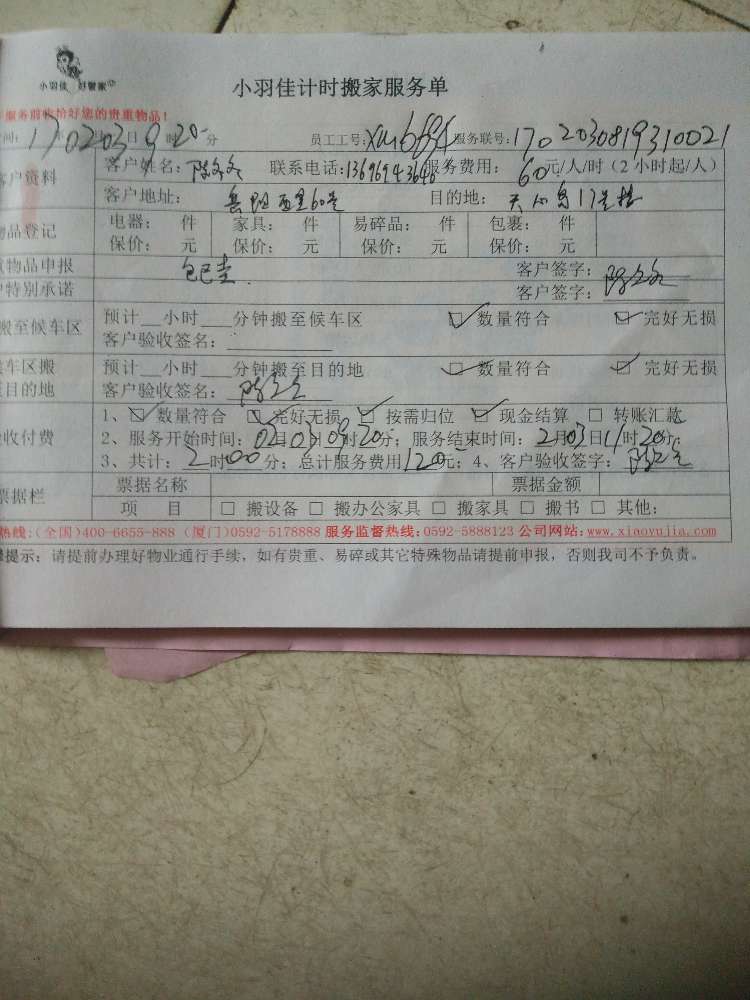 小羽佳 好管家
小羽佳计时搬家服务单
服务前收拾好您的贵重物品！
间：17年02月03日9时20分 员工工号：xm6884 服务联号：1702030819310021
客户资料 客户姓名： 联系电话：13696943646 服务费用：60元/人/时（2小时起/人）
客户地址：岳阳西里60号 目的地：天心岛17号楼
物品登记 电器： 件 家具： 件 易碎品： 件 包裹： 件
保价： 元 保价： 元 保价： 元 保价： 元
物品申报 客户签字：
特别承诺 客户签字：
搬至候车区 预计__小时___分钟搬至候车区 ☑数量符合 ☑完好无损
客户验收签名：
车区搬 预计__小时___分钟搬至目的地 ☑数量符合 ☑完好无损
目的地 客户验收签名：
收付费 1、☑数量符合 ☑完好无损 ☑按需归位 ☑现金结算 □转账汇款
2、服务开始时间：02月03日09时20分；服务结束时间：2月03日11时20分
3、共计：2时00分；总计服务费用120元；4、客户验收签字：
票据栏 票据名称 票据金额
项 目 □搬设备 □搬办公家具 □搬家具 □搬书 □其他：
热线：(全国)400-6655-888 (厦门)0592-5178888 服务监督热线：0592-5888123 公司网站：www.xiaoyujia.com
提示：请提前办理好物业通行手续，如有贵重、易碎或其它特殊物品请提前申报，否则我司不予负责。